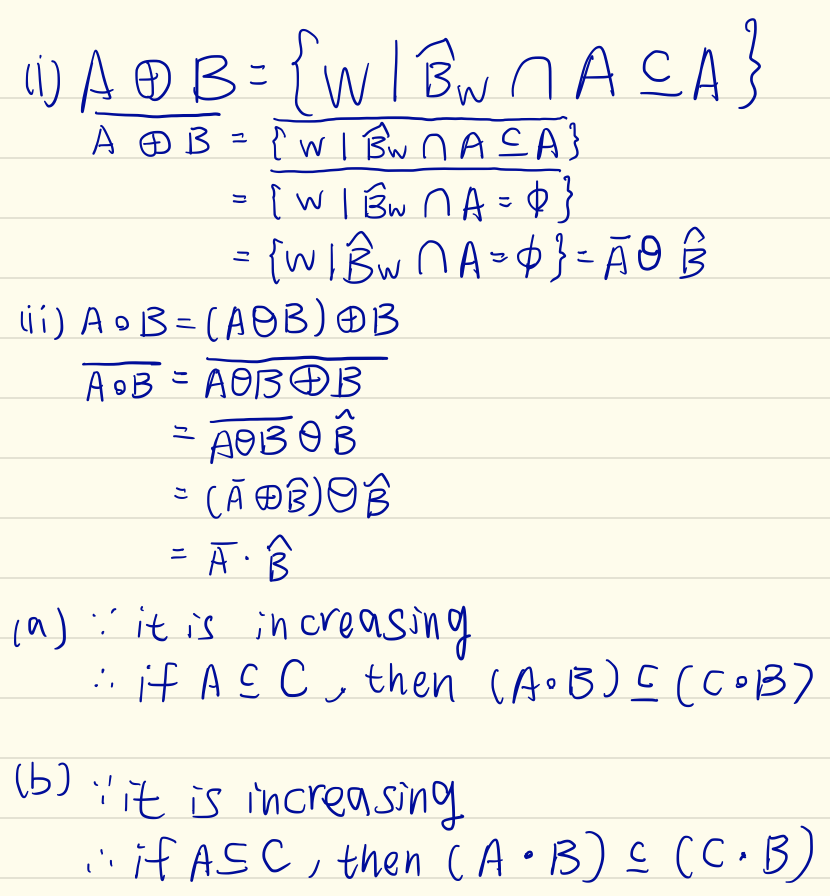 (i) A ⊕ B = {W | B̂_W ∩ A ⊆ A}
\overline{A ⊕ B} = \overline{{W | B̂_W ∩ A ⊆ A}}
= \overline{{W | B̂_W ∩ A = ϕ}}
= {W | B̂_W ∩ A = ϕ} = Ā ⊖ B̂
(ii) A ∘ B = (A ⊖ B) ⊕ B
\overline{A ∘ B} = \overline{A ⊖ B ⊕ B}
= \overline{A ⊖ B} ⊖ B̂
= (Ā ⊕ B̂) ⊖ B̂
= Ā · B̂
(a) ∵ it is increasing
∴ if A ⊆ C, then (A ∘ B) ⊆ (C ∘ B)
(b) ∵ it is increasing
∴ if A ⊆ C, then (A · B) ⊆ (C · B)